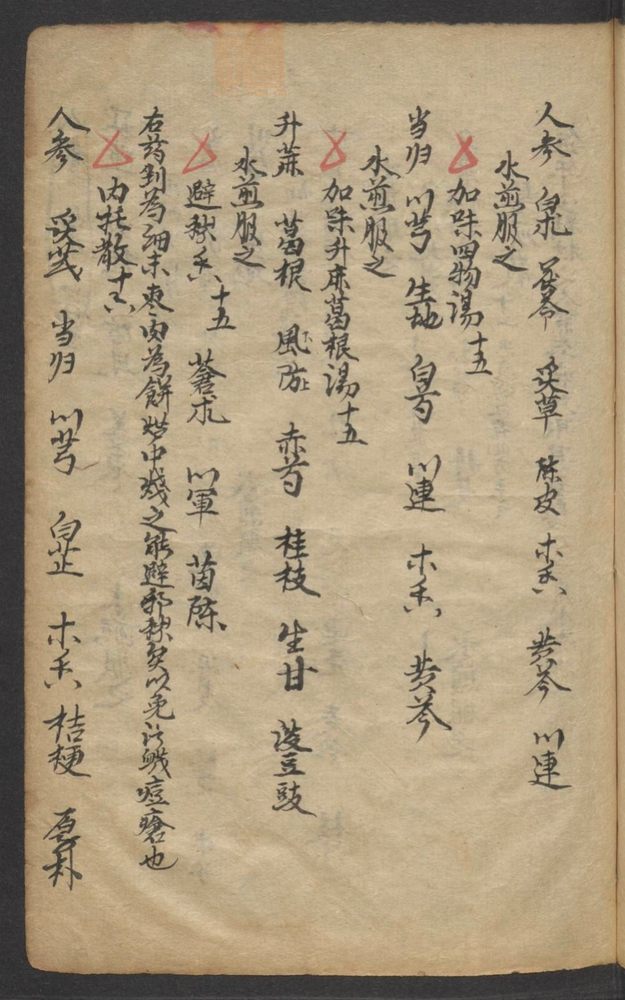 人参 白朮 茯苓 炙草 陈皮 木香 黄芩 川連
水煎服之
加味四物湯十五
当归 川芎 生地 白芍 川連 木香 黄芩
水煎服之
加味升麻葛根湯十五
升蔴 葛根 風防 赤芍 桂枝 生甘 淡豆豉
水煎服之
避秽香十五 蒼朮 川軍 茵陈
右药剉為細末枣肉為餅炉中燒之能避邪秽矣以免 痘瘡也
内托散十六
人参 炙芪 当归 川芎 白芷 木香 桔梗 厚朴